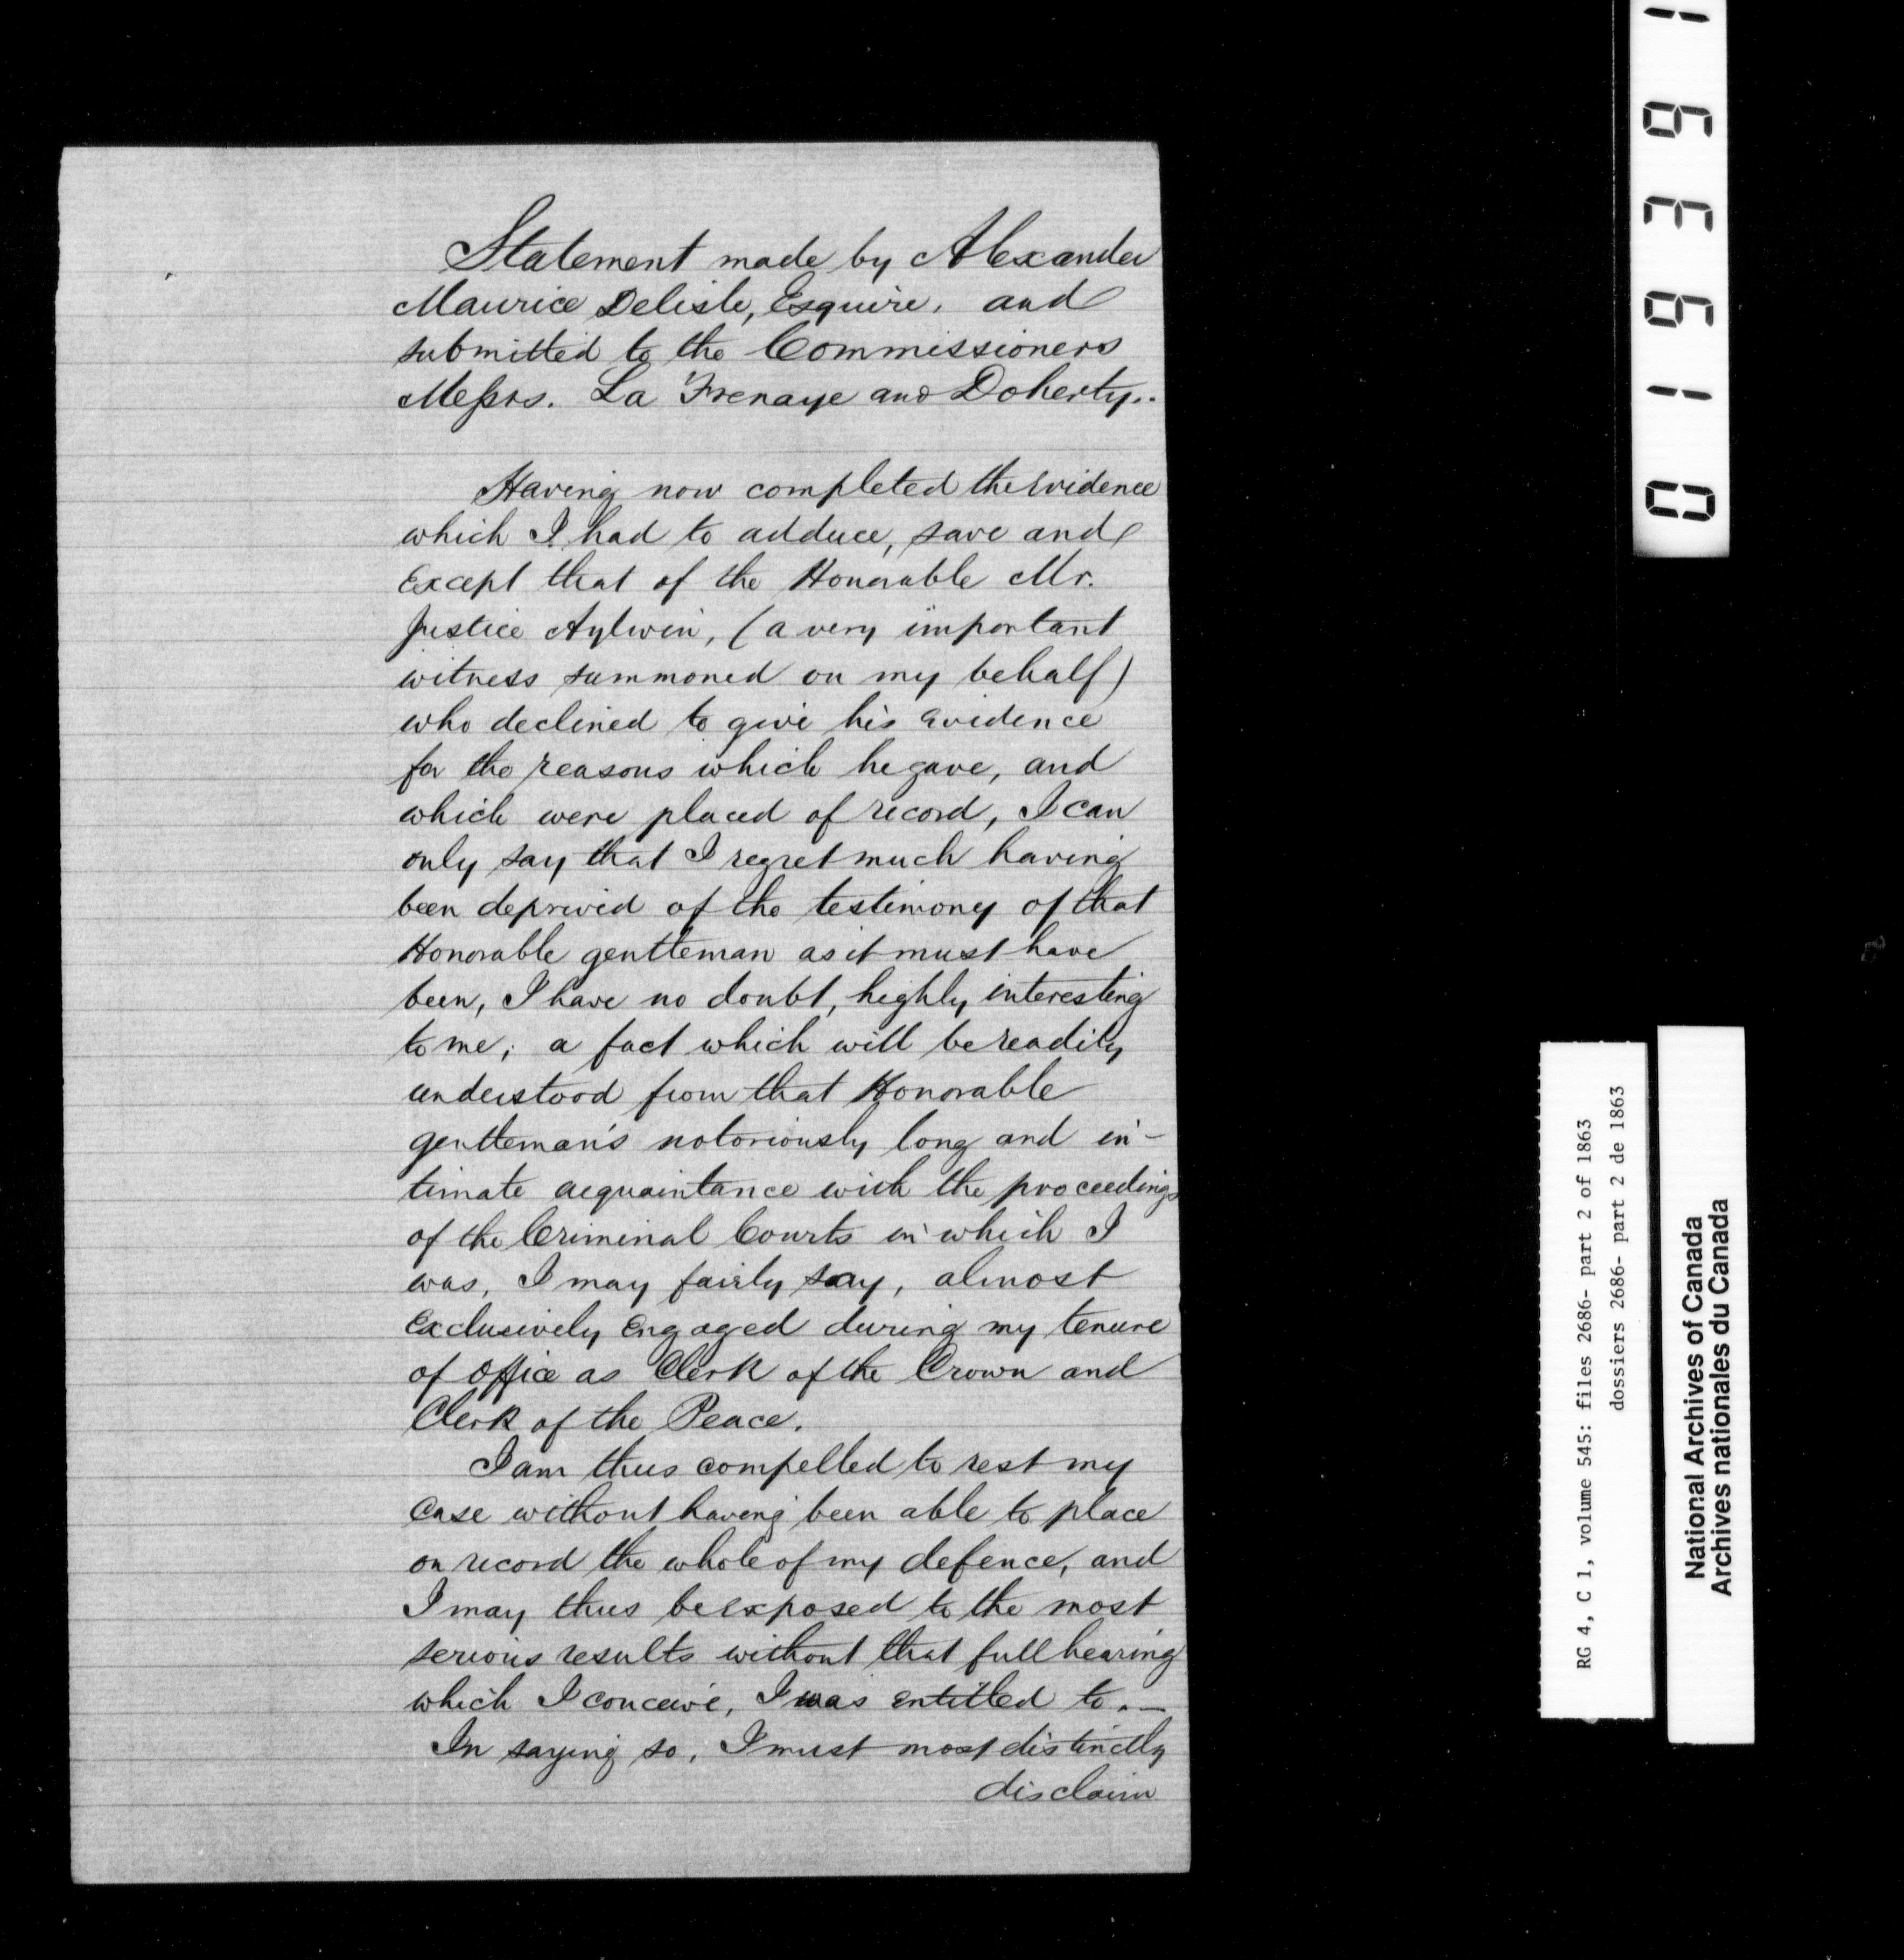 Statement made by Alexander
Maurice Delisle, Esquire, and
submitted to the Commissioners
Messrs. La Frenaye and Doherty..
Having now completed the evidence
which I had to adduce, save and
Except that of the Honorable Mr.
Justice Aylwin, (a very important
witness summoned on my behalf)
who declined to give his evidence
for the reasons which he gave, and
which were placed of record, I can
only say that I regret much having
been deprived of the testimony of that
Honorable gentleman as it must have
been, I have no doubt, highly interesting
to me; a fact which will be readily
understood from that Honorable
gentleman's notoriously long and in-
timate acquaintance with the proceedings
of the Criminal Courts in which I
was, I may fairly say, almost
Exclusively Engaged during my tenure
of office as Clerk of the Crown and
Clerk of the Peace.
I am thus compelled to rest my
Case without having been able to place
on record the whole of my defence, and
I may thus be exposed to the most
serious results without that full hearing
which I conceive, I was entitled to.—
In saying so, I must most distinctly
disclaim
0191391
RG 4, C 1, volume 545: files 2686- part 2 of 1863
dossiers 2686- part 2 de 1863
National Archives of Canada
Archives nationales du Canada